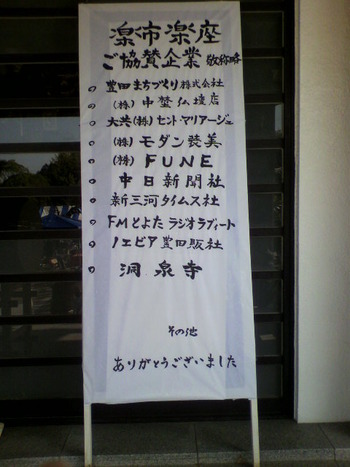 楽市楽座
ご協賛企業 敬称略
○ 豊田まちづくり株式会社
○ (株) 中埜仏壇店
○ 大共(株)セントマリアージュ
○ (株) モダン装美
○ (株) FUNE
○ 中日新聞社
○ 新三河タイムス社
○ FMとよた ラジオラブィート
○ ノエビア豊田販社
○ 洞泉寺
その他
ありがとうございました